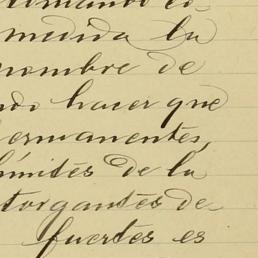 timando co-
medida la
nombre de
ndo hacer que
ermanentes,
límites de la
torgantes de
fuertes es